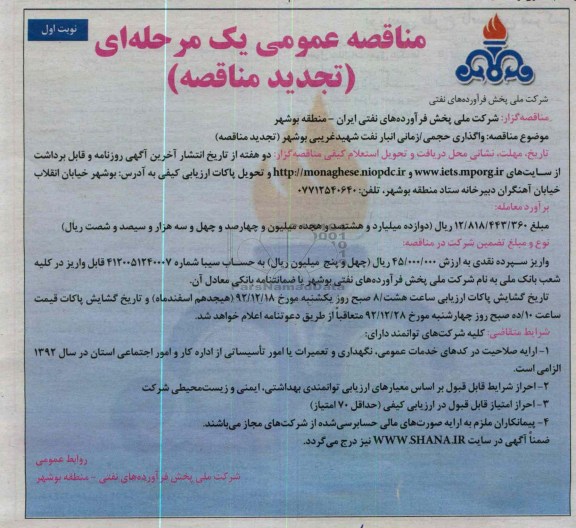 نوبت اول
مناقصه عمومی یک مرحله‌ای
(تجدید مناقصه)
شرکت ملی پخش فرآورده‌های نفتی
مناقصه‌گزار: شرکت ملی پخش فرآورده‌های نفتی ایران – منطقه بوشهر
موضوع مناقصه: واگذاری حجمی/زمانی انبار نفت شهیدغریبی بوشهر (تجدید مناقصه)
تاریخ، مهلت، نشانی محل دریافت و تحویل استعلام کیفی مناقصه‌گزار: دو هفته از تاریخ انتشار آخرین آگهی روزنامه و قابل برداشت
از سـایت‌های www.iets.mporg.ir و http://monaghese.niopdc.ir و تحویل پاکات ارزیابی کیفی به آدرس: بوشهر خیابان انقلاب
خیابان آهنگران دبیرخانه ستاد منطقه بوشهر، تلفن: ۰۷۷۱۲۵۴۰۶۴۰
برآورد معامله:
مبلغ ۱۲/۸۱۸/۴۴۳/۳۶۰ ریال (دوازده میلیارد و هشتصد و هجده میلیون و چهارصد و چهل و سه هزار و سیصد و شصت ریال)
نوع و مبلغ تضمین شرکت در مناقصه:
واریز سـپرده نقدی به ارزش ۴۵/۰۰۰/۰۰۰ ریال (چهل و پنج میلیون ریال) به حسـاب سیبا شماره ۴۱۲۰۰۵۱۲۴۰۰۰۷ قابل واریز در کلیه
شعب بانک ملی به نام شرکت ملی پخش فرآورده‌های نفتی بوشهر یا ضمانتنامه بانکی معادل آن.
تاریخ گشایش پاکات ارزیابی ساعت هشت/۸ صبح روز یکشنبه مورخ ۹۲/۱۲/۱۸ (هیجدهم اسفندماه) و تاریخ گشایش پاکات قیمت
ساعت ۱۰/ده صبح روز چهارشنبه مورخ ۹۲/۱۲/۲۸ متعاقباً از طریق دعوتنامه اعلام خواهد شد.
شرایط متقاضی: کلیه شرکت‌های توانمند دارای:
۱– ارایه صلاحیت در کدهای خدمات عمومی، نگهداری و تعمیرات یا امور تأسیساتی از اداره کار و امور اجتماعی استان در سال ۱۳۹۲
الزامی است.
۲– احراز شرایط قابل قبول بر اساس معیارهای ارزیابی توانمندی بهداشتی، ایمنی و زیست‌محیطی شرکت
۳– احراز امتیاز قابل قبول در ارزیابی کیفی (حداقل ۷۰ امتیاز)
۴– پیمانکاران ملزم به ارایه صورت‌های مالی حسابرسی‌شده از شرکت‌های مجاز می‌باشند.
ضمناً آگهی در سایت WWW.SHANA.IR نیز درج می‌گردد.
روابط عمومی
شرکت ملی پخش فرآورده‌های نفتی – منطقه بوشهر